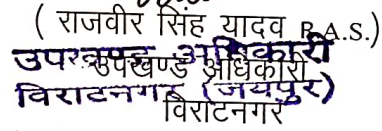 ( राजवीर सिंह यादव R.A.S.)
उपखण्ड अधिकारी
उपखण्ड अधिकारी
विराटनगर (जयपुर)
विराटनगर